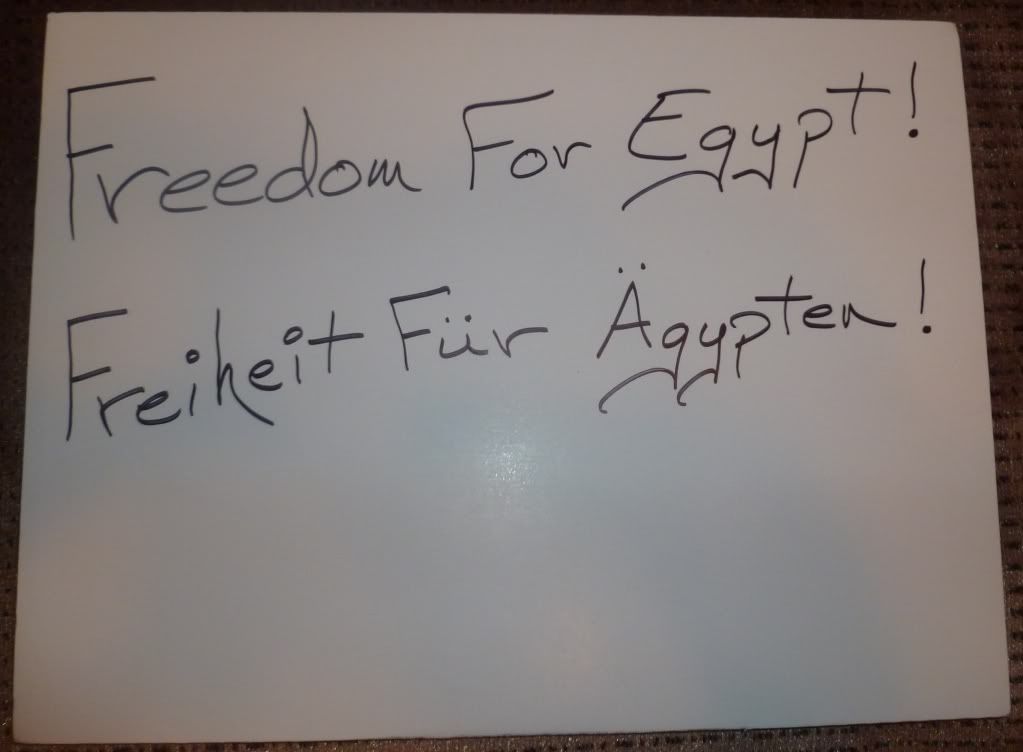 Freedom For Egypt!
Freiheit Für Ägypten!